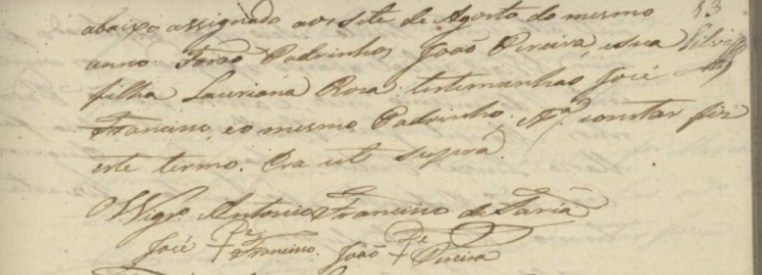 abaixo assignado aos sete de Agosto do mesmo
anno. Forão Padrinhos João Pireira, e sua
filha Lauriana Rosa: testimunhas José
Francino, e o mesmo Padrinho. Pª. constar fiz
este termo. Era ut supra
O Vigrº Antonio Francino de Faria
José + Francino. João + Pireira